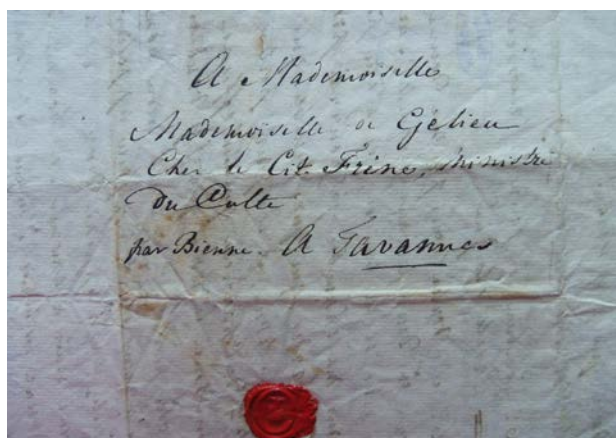 A Mademoiselle
Mademoiselle de Gelieu
Chez le Cit. Frêne, Ministre
du Culte
par Bienne. A Tavannes